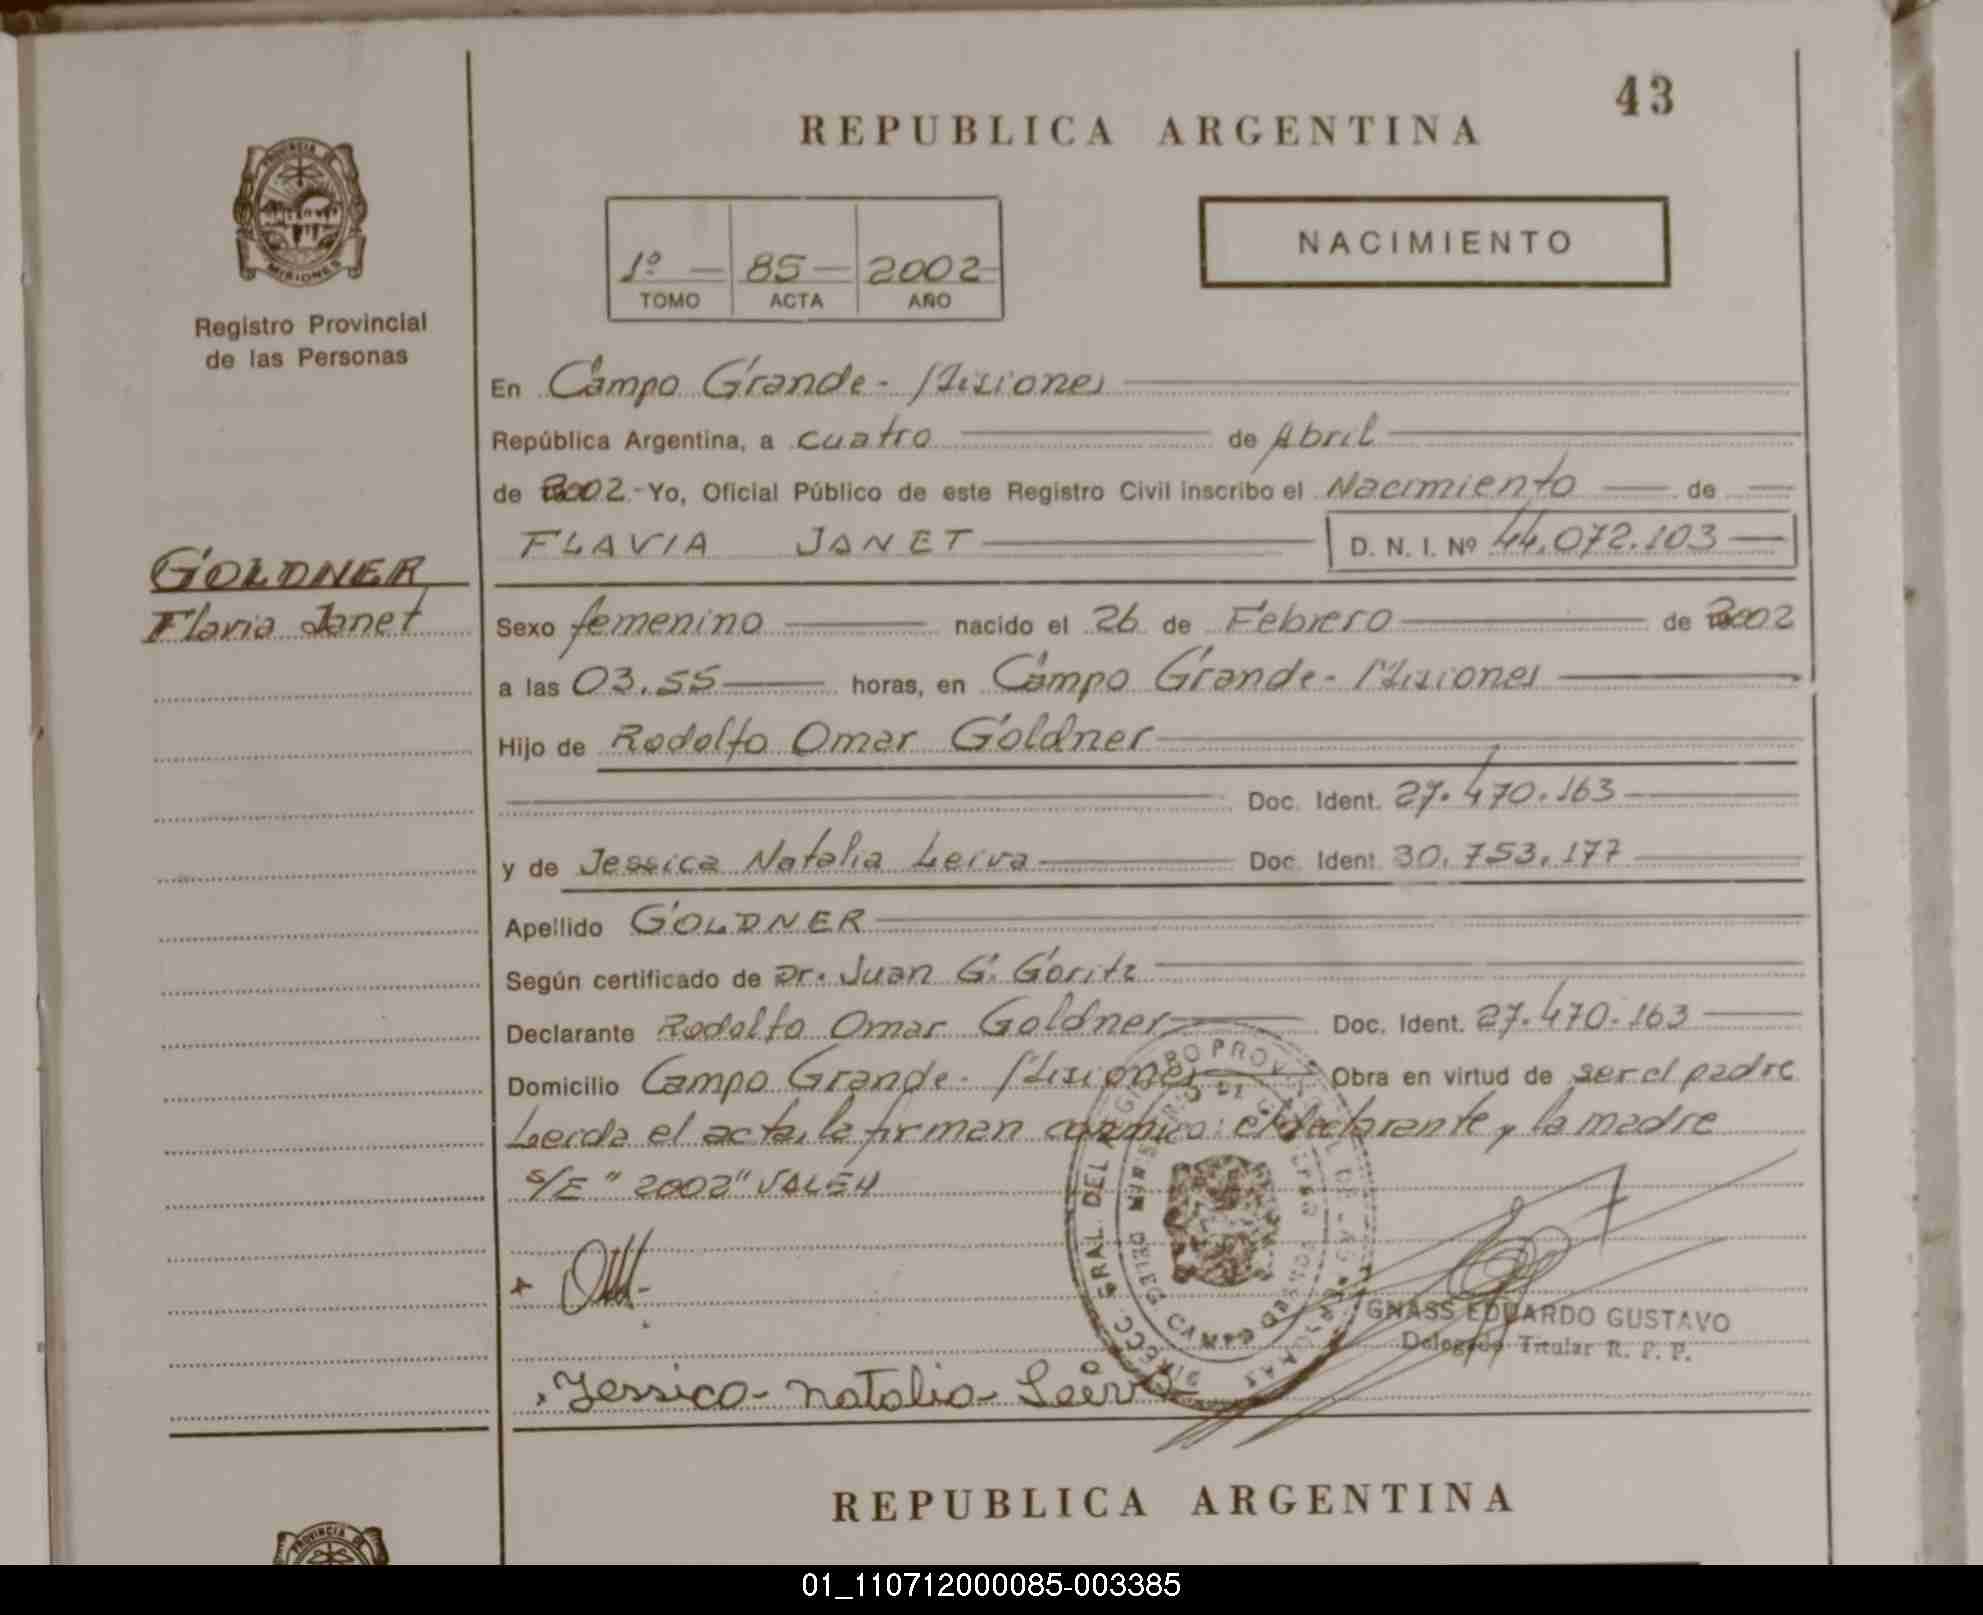 43
REPUBLICA ARGENTINA
PROVINCIA DE
MISIONES
Registro Provincial
de las Personas
1º - 85 - 2002
TOMO ACTA AÑO
NACIMIENTO
En Campo Grande - Misiones
República Argentina, a cuatro de Abril
de 2002 - Yo, Oficial Público de este Registro Civil inscribo el Nacimiento de
FLAVIA JANET D. N. I. Nº 44.072.103
GOLDNER
Flavia Janet
Sexo femenino nacido el 26 de Febrero de 2002
a las 03.55 horas, en Campo Grande - Misiones
Hijo de Rodolfo Omar Goldner
Doc. Ident. 27.470.163
y de Jessica Natalia Leiva Doc. Ident. 30.753.177
Apellido GOLDNER
Según certificado de Dr. Juan G. Goritz
Declarante Rodolfo Omar Goldner Doc. Ident. 27.470.163
Domicilio Campo Grande - Misiones Obra en virtud de ser el padre
Leida el acta, la firman conmigo: el declarante y la madre
S/E "2002" VALEN
GNASS EDUARDO GUSTAVO
Delegado Titular R. P. P.
Jessica - natalia - Leiva
REPUBLICA ARGENTINA
PROVINCIA
01_110712000085-003385